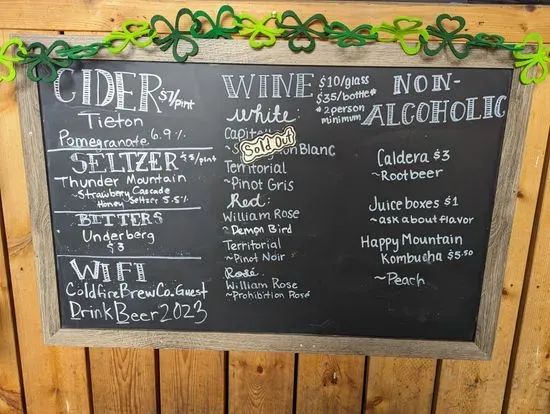 CIDER $7/pint
Tieton
Pomegranate 6.9%
SELTZER /pint
Thunder Mountain
~Strawberry Cascade
Honey Seltzer 5.5%
BITTERS
Underberg
$3
WIFI
ColdfireBrewCo.Guest
DrinkBeer2023
WINE $10/glass
$35/bottle*
*2 person
minimum
White:
Sold Out
Blanc
Territorial
~Pinot Gris
Red:
William Rose
~Demon Bird
Territorial
~Pinot Noir
Rosé
William Rose
~Prohibition Rosé
NON-
ALCOHOLIC
Caldera $3
~Rootbeer
Juice boxes $1
~ask about flavor
Happy Mountain
Kombucha $5.50
~Peach